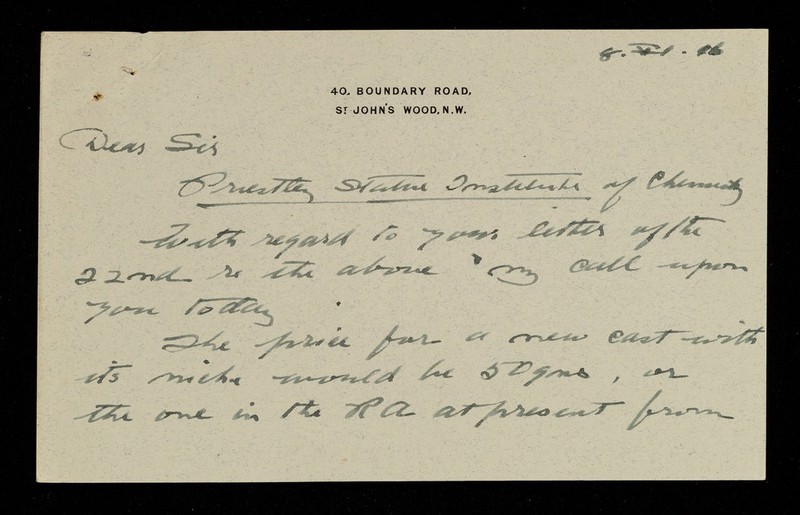 8.VI.16
40, BOUNDARY ROAD,
ST JOHN'S WOOD, N.W.
Dear Sir
Priestley Statue Institute of Chemistry
With regard to your letter of the
22nd re the above & my call upon
you today
The price for a new cast with
its niche would be 50 gns, or
the one in the RA at present from